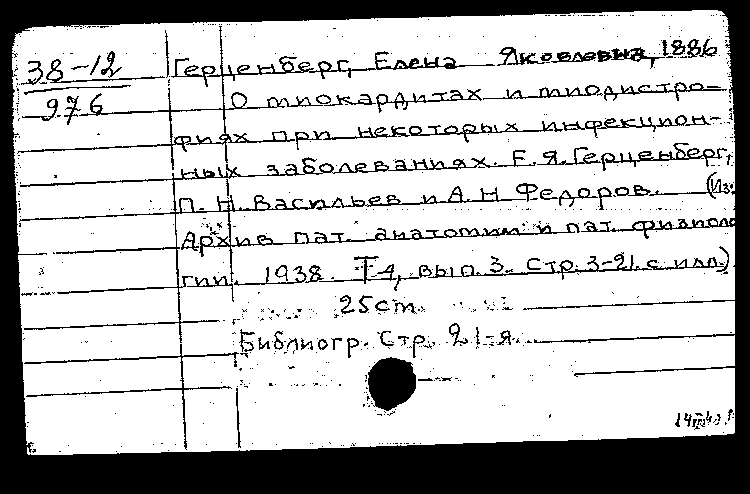 38-12
976
Герценберг, Елена Яковлевна, 1886
О миокардитах и миодистро-
фиях при некоторых инфекцион-
ных заболеваниях. Е. Я. Герценберг,
П. Н. Васильев и А. Н. Федоров. (Из:
Архив пат. анатомии и пат. физиоло
гии. 1938. Т 4, вып. 3. Стр. 3-21. с илл.)
25 cm.
Библиогр. Стр. 21-я.